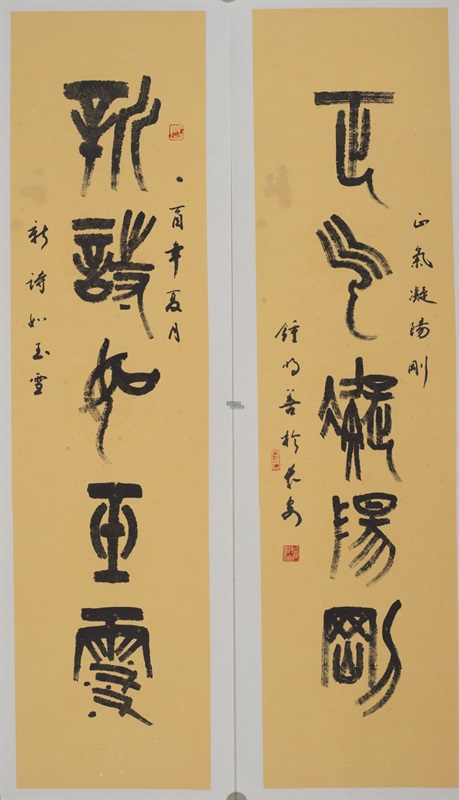 正气凝陽剛
正氣凝陽剛
鍾明善於長安
新詩如玉雪
酉年夏月
新詩如玉雪